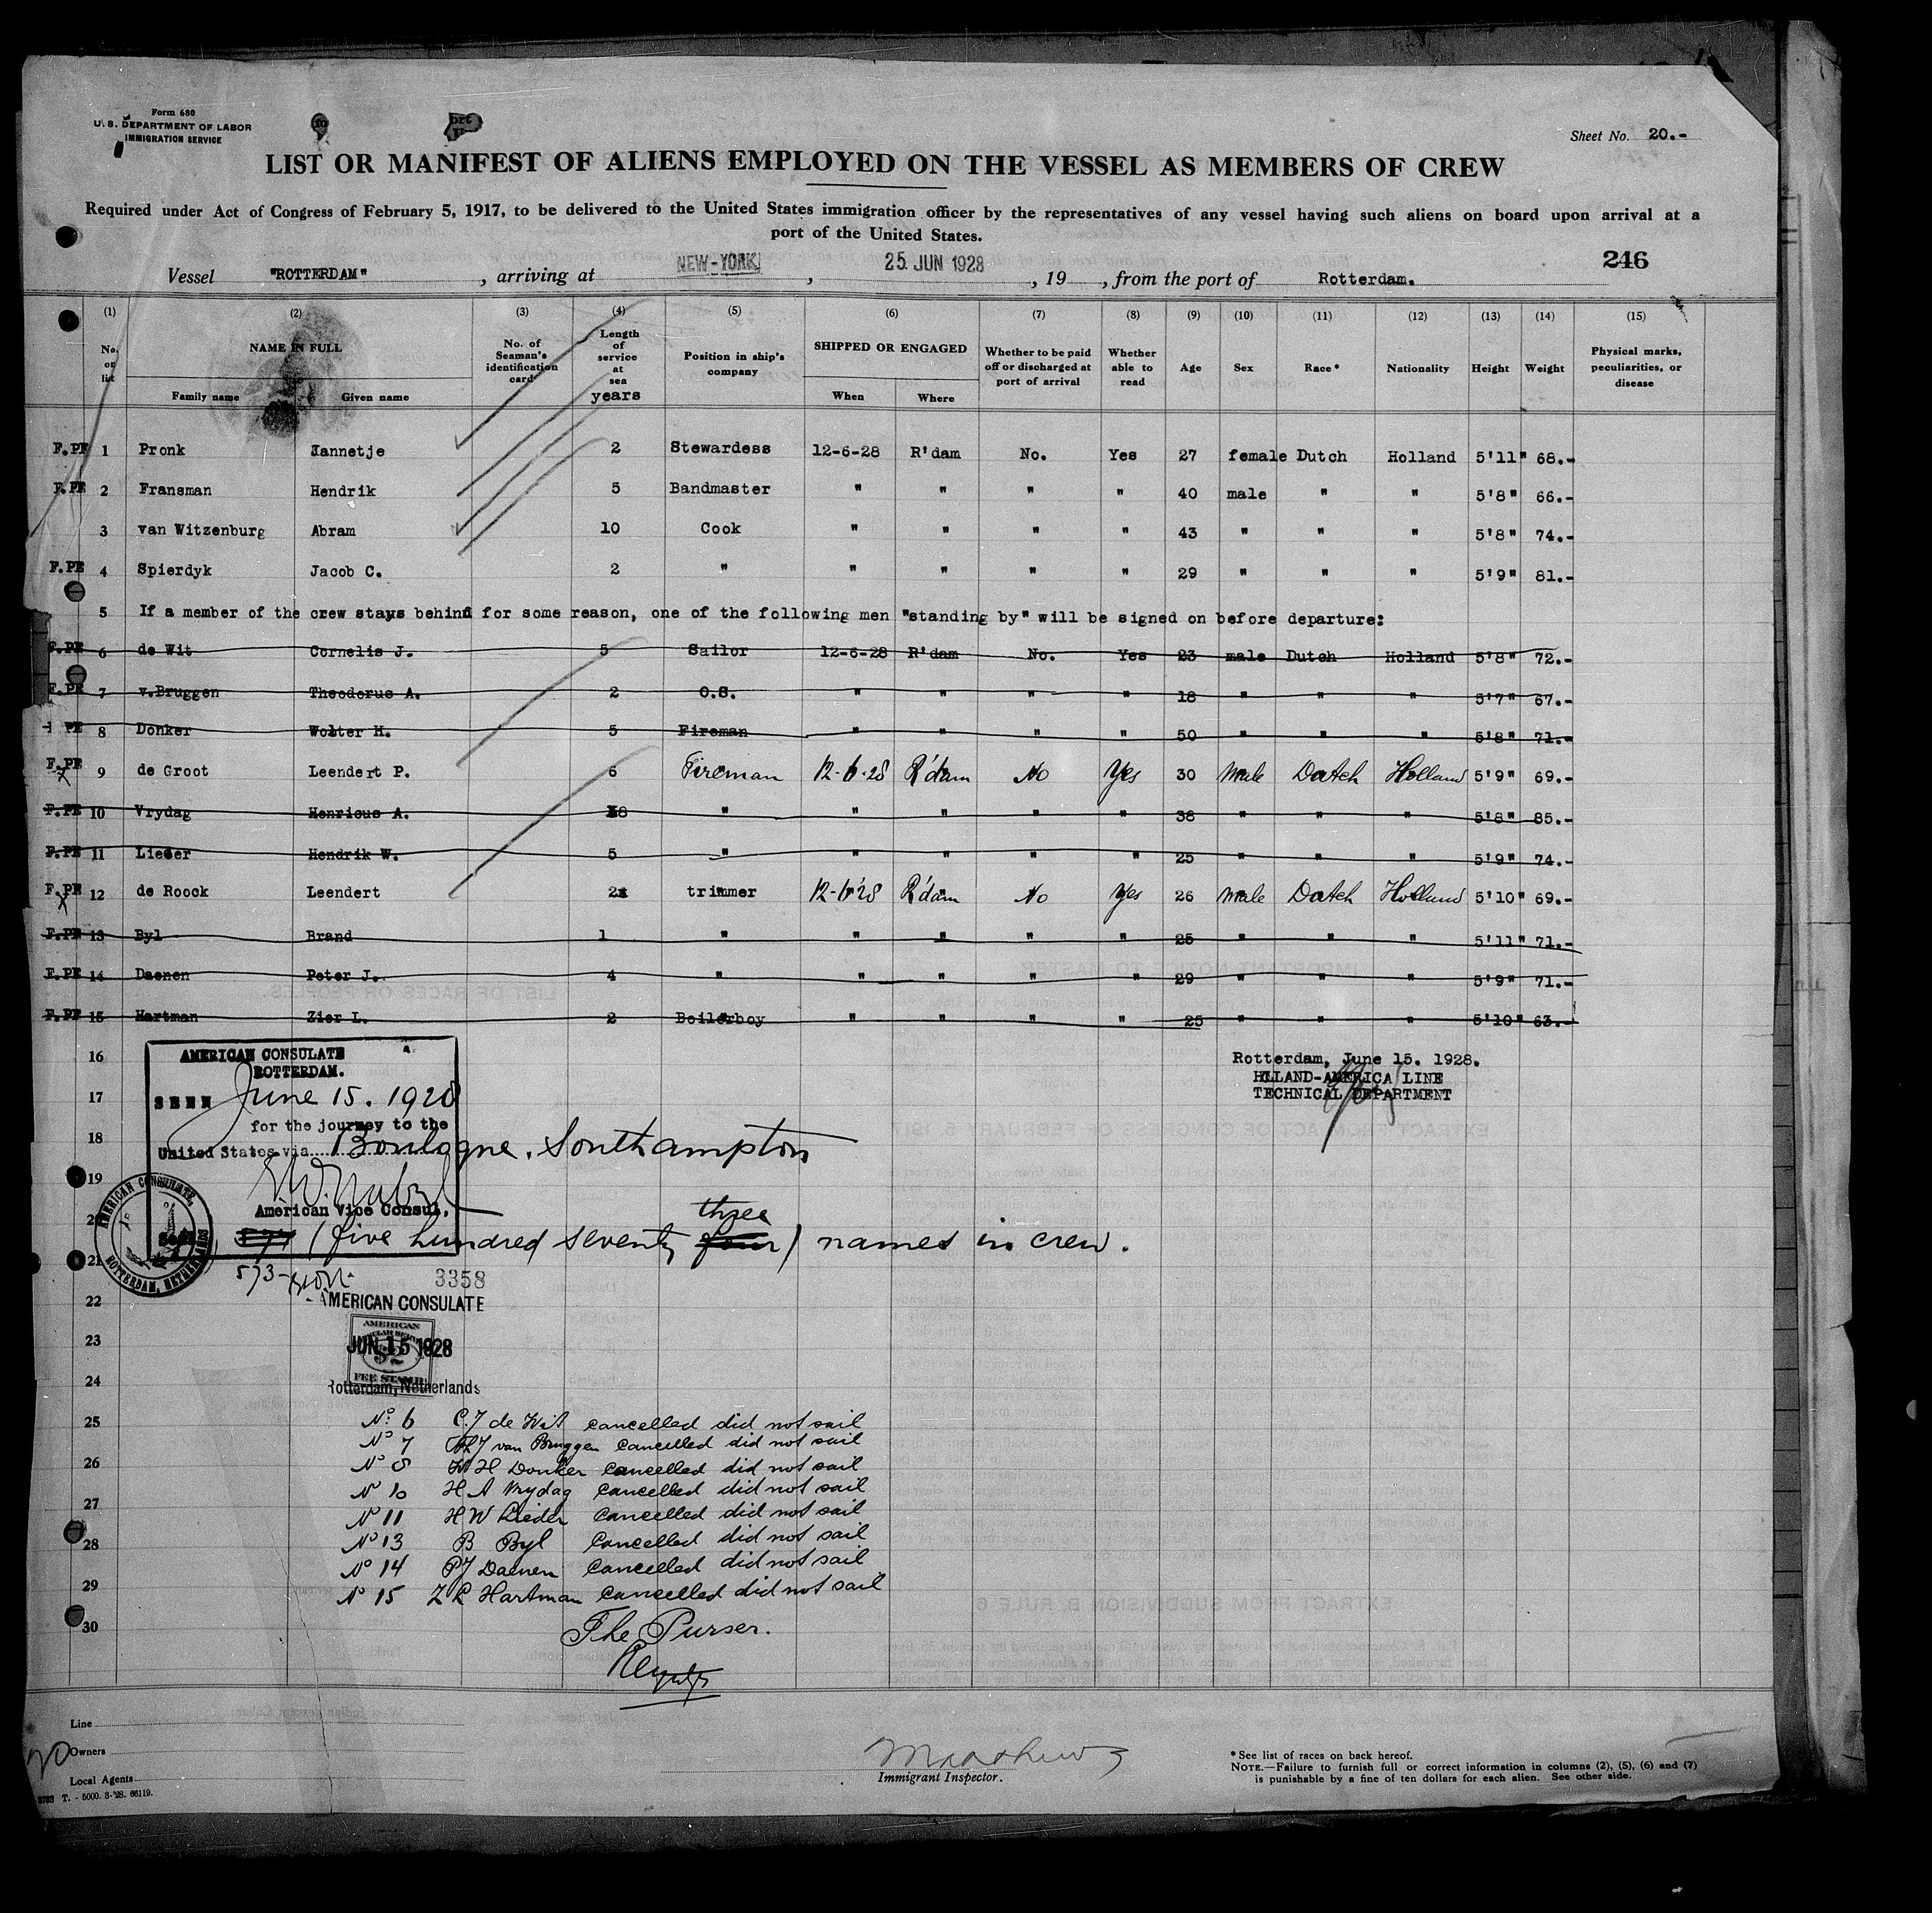 Form 680
U. S. DEPARTMENT OF LABOR
IMMIGRATION SERVICE
Sheet No. 20.-
LIST OR MANIFEST OF ALIENS EMPLOYED ON THE VESSEL AS MEMBERS OF CREW
Required under Act of Congress of February 5, 1917, to be delivered to the United States immigration officer by the representatives of any vessel having such aliens on board upon arrival at a
port of the United States.
246
Vessel "ROTTERDAM", arriving at NEW-YORK, 25 JUN 1928, 19 , from the port of Rotterdam.
(1) (2) (3) (4) (5) (6) (7) (8) (9) (10) (11) (12) (13) (14) (15)
No. on list
NAME IN FULL
Family name Given name
No. of Seaman's identification card
Length of service at sea years
Position in ship's company
SHIPPED OR ENGAGED
When Where
Whether to be paid off or discharged at port of arrival
Whether able to read
Age Sex Race* Nationality Height Weight
Physical marks, peculiarities, or disease
F.PF 1 Pronk Jannetje 2 Stewardess 12-6-28 R'dam No. Yes 27 female Dutch Holland 5'11" 68.-
F.PF 2 Fransman Hendrik 5 Bandmaster " " " " 40 male " " 5'8" 66.-
3 van Witzenburg Abram 10 Cook " " " " 43 " " " 5'8" 74.-
F.PF 4 Spierdyk Jacob C. 2 " " " " " 29 " " " 5'9" 81.-
5 If a member of the crew stays behind for some reason, one of the following men "standing by" will be signed on before departure:
F.PF 6 de Wit Cornelis J. 5 Sailor 12-6-28 R'dam No. Yes 23 male Dutch Holland 5'8" 72.-
F.PF 7 v.Bruggen Theodorus A. 2 O.S. " " " " 18 " " " 5'7" 67.-
PF 8 Donker Wolter H. 5 Fireman " " " " 50 " " " 5'8" 71.-
F.PF 9 de Groot Leendert P. 6 Fireman 12-6-28 R'dam No Yes 30 Male Dutch Holland 5'9" 69.-
F.PF 10 Vrydag Henricus A. 8 " " " " " 38 " " " 5'8" 85.-
F.PF 11 Lieder Hendrik W. 5 " " " " " 25 " " " 5'9" 74.-
F.PF 12 de Roock Leendert 2 trimmer 12-6-28 R'dam No Yes 26 Male Dutch Holland 5'10" 69.-
F.PF 13 Byl Brand 1 " " " " " 25 " " " 5'11" 71.-
F.PF 14 Daenen Peter J. 4 " " " " " 29 " " " 5'9" 71.-
F.PF 15 Hartman Zier L. 2 Boilerboy " " " " 25 " " " 5'10" 63.-
16
17
18
19
20
21
22
23
24
25
26
27
28
29
30
Rotterdam, June 15. 1928.
HOLLAND-AMERICA LINE
TECHNICAL DEPARTMENT
AMERICAN CONSULATE
ROTTERDAM.
SEEN June 15. 1928
for the journey to the
United States via Boulogne, Southampton
American Vice Consul.
AMERICAN CONSULATE, ROTTERDAM, NETHERLANDS
574 (five hundred seventy four) three names in crew.
573
3358
AMERICAN CONSULATE
AMERICAN CONSULAR SERVICE $2 FEE STAMP
JUN 15 1928
Rotterdam, Netherlands
No 6 C.J de Wit cancelled did not sail
No 7 van Bruggen cancelled did not sail
No 8 W H Donker cancelled did not sail
No 10 H A Vrydag cancelled did not sail
No 11 H W Lieder cancelled did not sail
No 13 B Byl cancelled did not sail
No 14 P J Daenen cancelled did not sail
No 15 Z L Hartman cancelled did not sail
The Purser.
Line
Owners
Local Agents
T. - 5000. 3-'28. 66119.
20
Matthews
Immigrant Inspector.
*See list of races on back hereof.
NOTE.—Failure to furnish full or correct information in columns (2), (5), (6) and (7)
is punishable by a fine of ten dollars for each alien. See other side.